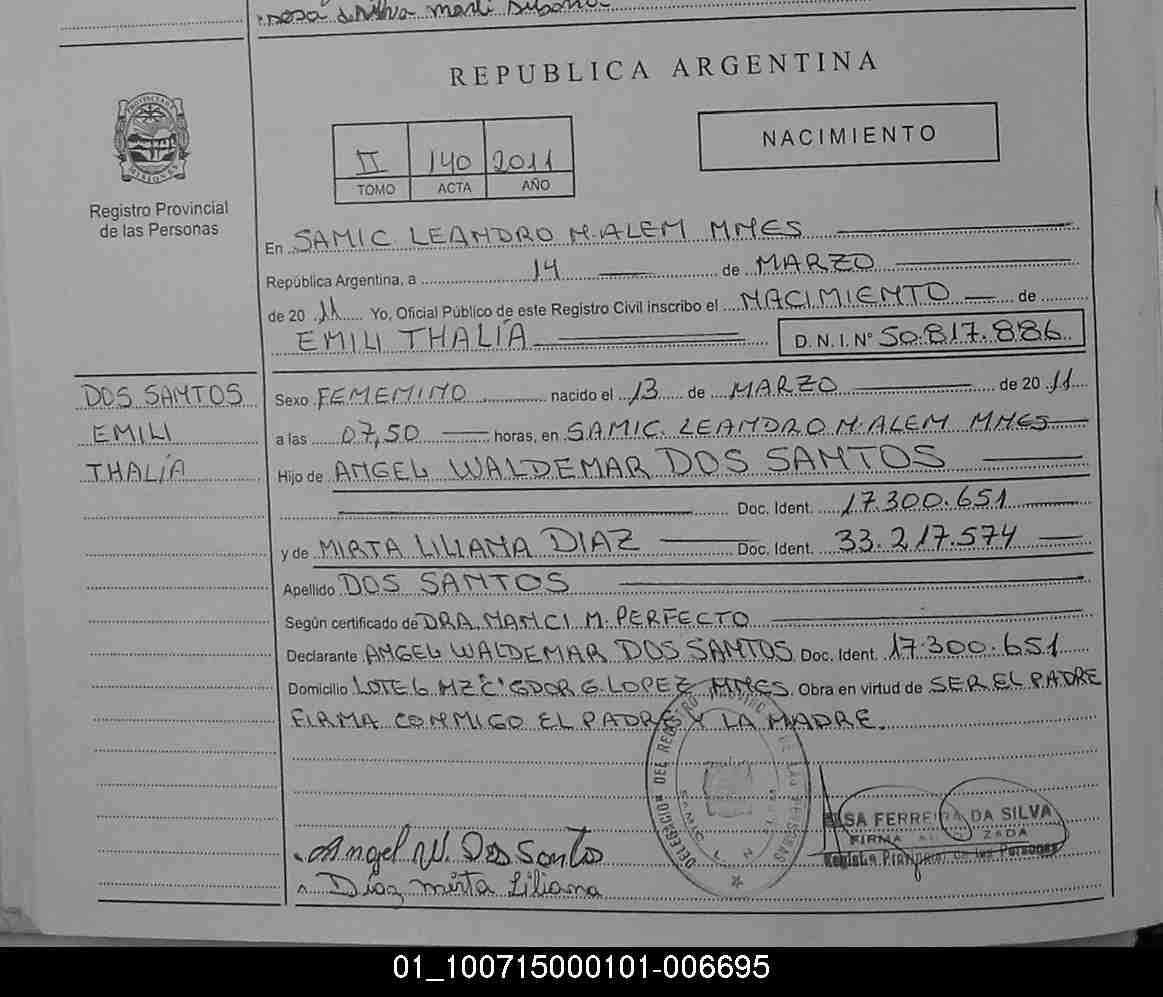 REPUBLICA ARGENTINA
NACIMIENTO
II 140 2011
TOMO ACTA AÑO
PROVINCIA DE MISIONES
Registro Provincial
de las Personas
En SAMIC. LEANDRO N. ALEM MNES
República Argentina, a 14 de MARZO
de 20 11 Yo, Oficial Público de este Registro Civil inscribo el NACIMIENTO de
EMILI THALÍA D.N.I. N° 50.817.886
DOS SANTOS
EMILI
THALÍA
Sexo FEMENINO nacido el 13 de MARZO de 20 11
a las 07,50 horas, en SAMIC. LEANDRO N. ALEM MNES
Hijo de ANGEL WALDEMAR DOS SANTOS
Doc. Ident. 17.300.651
y de MIRTA LILIANA DIAZ Doc. Ident. 33.217.574
Apellido DOS SANTOS
Según certificado de DRA. NANCI M. PERFECTO
Declarante ANGEL WALDEMAR DOS SANTOS Doc. Ident. 17.300.651
Domicilio LOTE 6 MZ "C" GDOR G. LOPEZ MNES. Obra en virtud de SER EL PADRE
FIRMA CONMIGO EL PADRE Y LA MADRE.
DELEGACION DEL REGISTRO DE LAS PERSONAS
SA FERREIRA DA SILVA
FIRMA AUTORIZADA
Registro Provincial de las Personas
Angel W. Dos Santos
Diaz Mirta Liliana
01_100715000101-006695